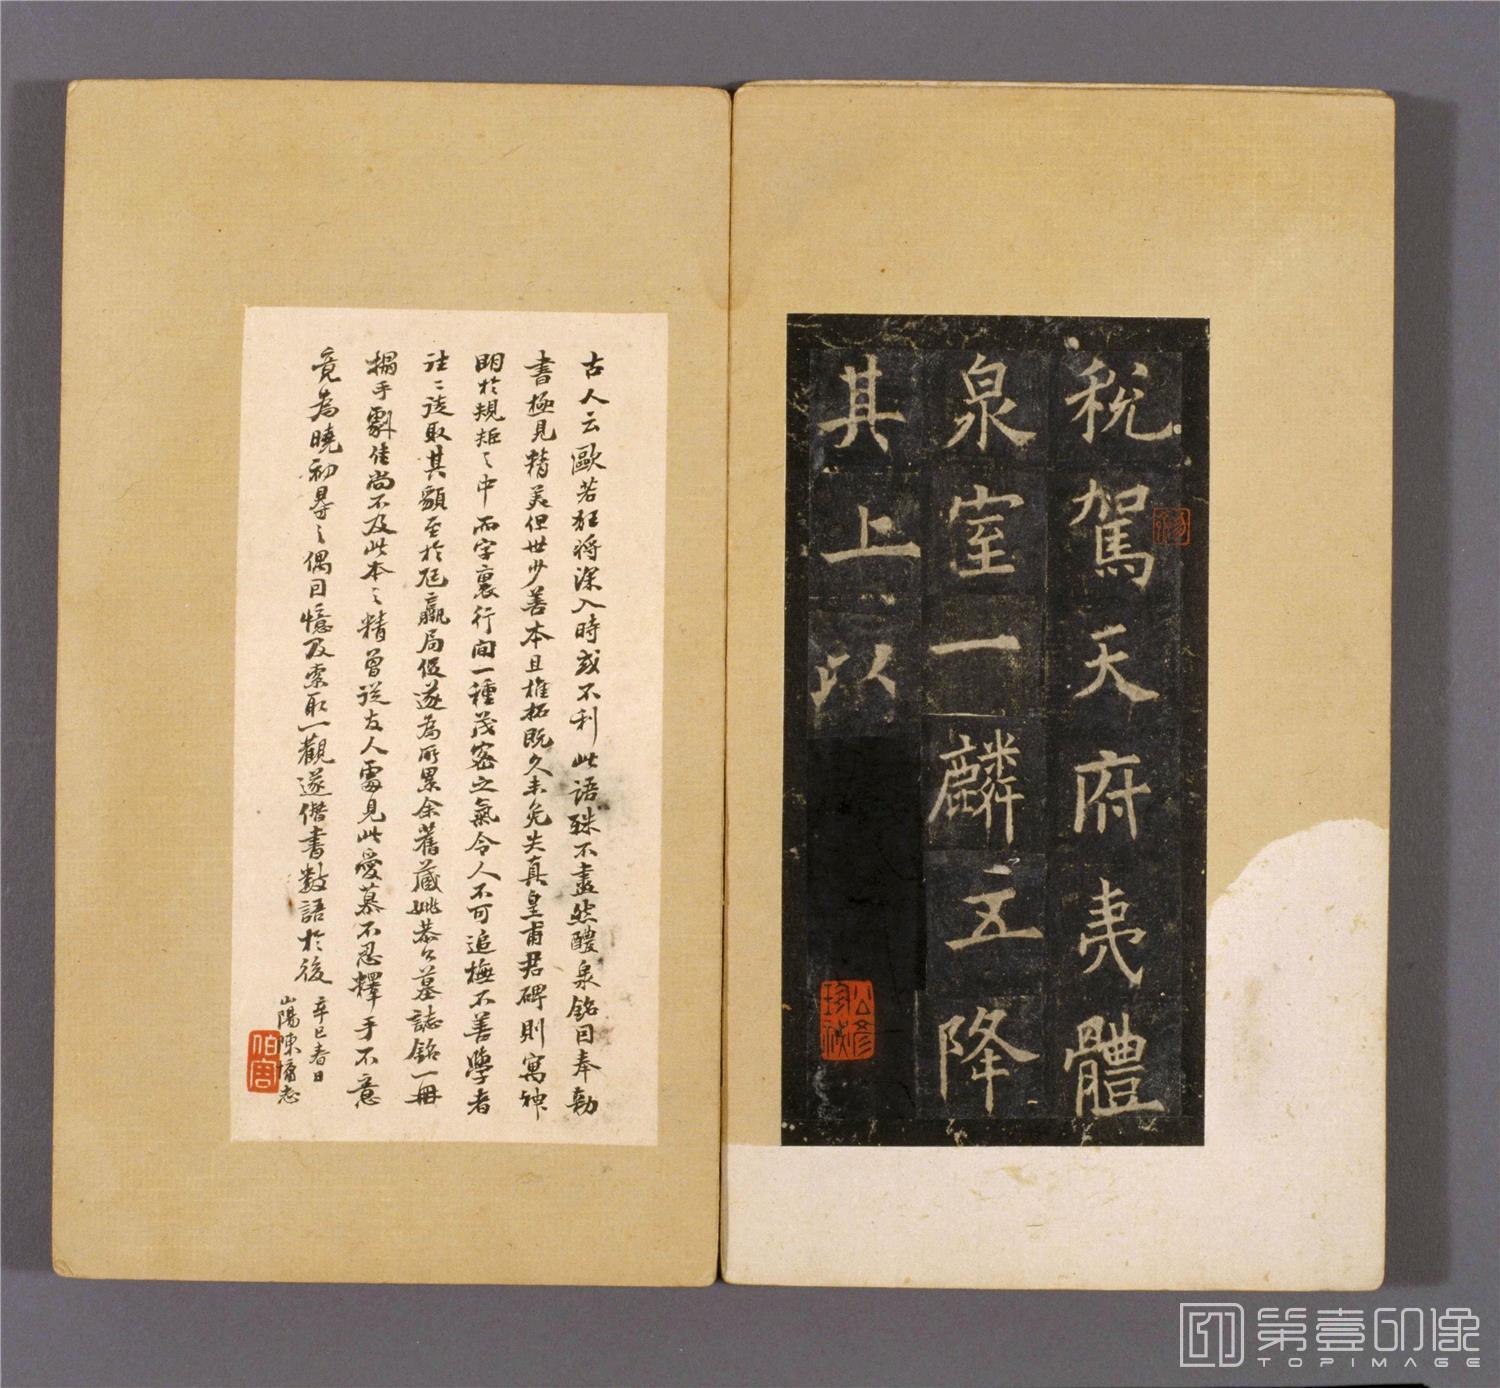 稅駕天府夷體
泉室一麟立降
其上以
公彥
珍祕
古人云歐若狂將深入時或不利此語殊不盡然醴泉銘曰奉勅
書極見精美但世少善本且椎拓既久未免失真皇甫君碑則寓神
明於規矩之中而字裏行間一種茂密之氣令人不可追橅不善學者
往〻徒取其貌至於尫羸局促遂為所累余舊藏姚恭公墓誌銘一冊
搨手劇佳尚不及此本之精曾從友人處見此愛慕不忍釋手不意
竟為曉初㝵之偶目憶及索取一觀遂僭書數語於後
辛巳春日
山陽陳墉志
第壹印像
TOPIMAGE